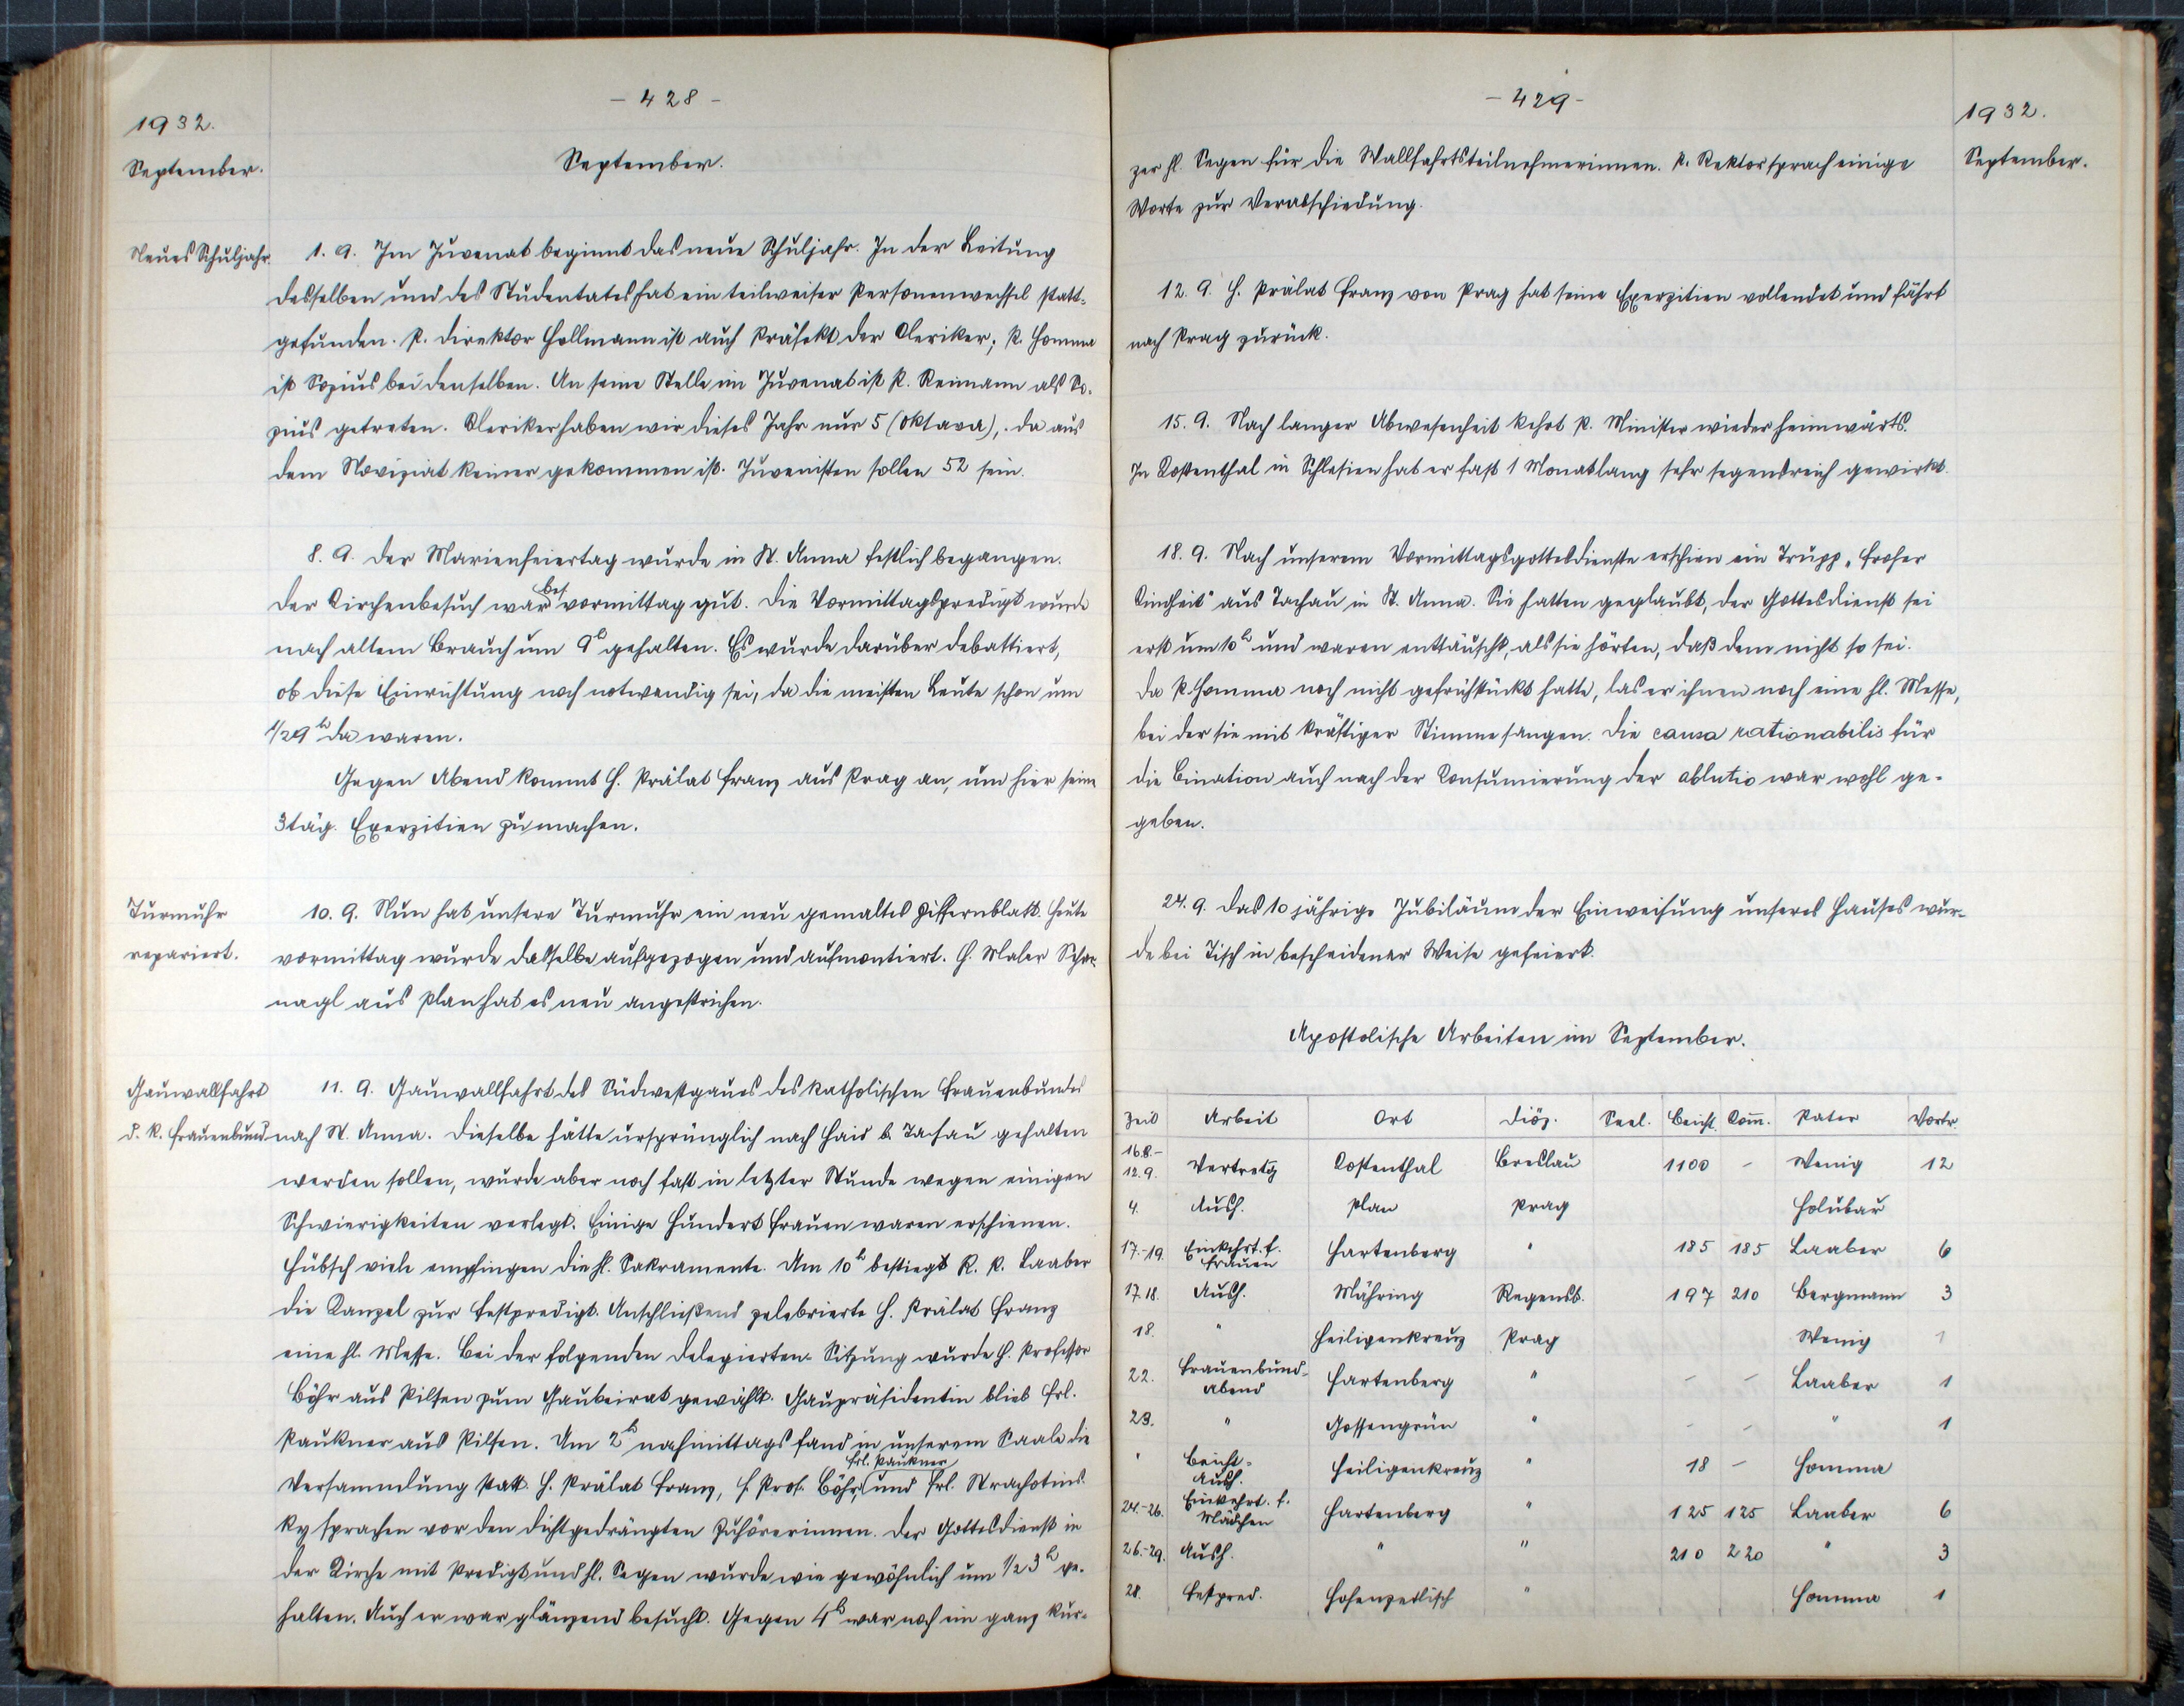 - 428 -
1932.
September.
September.
Neues Schuljahr.
1. 9. Im Juvenat beginnt das neue Schuljahr. In der Leitung
desselben und des Studentates hat ein teilweiser Personenwechsel statt-
gefunden. P. Direktor Hollmann ist auch Präfekt der Cleriker; P. Homma
ist Sozius bei denselben. An seine Stelle im Juvenat ist P. Reimann als So-
zius getreten. Cleriker haben wir dieses Jahr nur 5 (Oktava), da aus
dem Noviziat keiner gekommen ist. Juvenisten sollen 52 sein.
8. 9. Der Marienfeiertag wurde in St. Anna festlich begangen.
Der Kirchenbesuch war bes vormittag gut. Die Vormittagspredigt wurde
nach altem Brauch um 9h gehalten. Es wurde darüber debattiert,
ob diese Einrichtung noch notwendig sei, da die meisten Leute schon um
1/2 9h da waren.
Gegen Abend kommt H. Prälat Franz aus Prag an, um hier seine
3täg. Exerzitien zu machen.
Turmuhr
repariert.
10. 9. Nun hat unsere Turmuhr ein neu gemaltes Ziffernblatt. Heute
vormittag wurde dasselbe aufgezogen und aufmontiert. H. Maler
nagl aus Plan hat es neu angestrichen.
Gauwallfahrt
d. K. Frauenbund
11. 9. Gauwallfahrt des Südwestgaues des katholischen Frauenbundes
nach St. Anna. Dieselbe hätte ursprünglich nach Haid b. Tachau gehalten
werden sollen, wurde aber noch fast in letzter Stunde wegen einigen
Schwierigkeiten verlegt. Einige Hundert Frauen waren erschienen.
Hübsch viele empfingen die hl. Sakramente. Um 10h bestiegt R. P. Laaber
die Kanzel zur Festpredigt. Anschließend zelebrierte H. Prälat Franz
eine hl. Messe. Bei der folgenden Delegierten-Sitzung wurde H. Professor
Böhr aus Pilsen zum Gaubeirat gewählt. Gaupräsidentin blieb Frl.
Paukner aus Pilsen. Um 2h nachmittags fand in unserem Saale die
Frl. Paukner
Versammlung statt. H. Prälat Franz, H. Prof. Böhr, und Frl. Strachotins-
ky sprachen vor den dichtgedrängten Zuhörerinnen. Der Gottesdienst in
der Kirche mit Predigt und hl. Segen wurde wie gewöhnlich um 1/2 3h ge-
halten. Auch er war glänzend besucht. Gegen 4h war noch ein ganz kur-
- 429 -
1932.
September.
zer hl. Segen für die Wallfahrtsteilnehmerinnen. P. Rektor sprach einige
Worte zur Verabschiedung.
12. 9. H. Prälat Franz von Prag hat seine Exerzitien vollendet und fährt
nach Prag zurück.
15. 9. Nach langer Abwesenheit kehrt P. Minister wieder heimwärts.
In Kostenthal in Schlesien hat er fast 1 Monat lang sehr segensreich gewirkt.
18. 9. Nach unserem Vormittagsgottesdienste erschien ein Trupp „Froher
Kindheit" aus Tachau in St. Anna. Sie hatten geglaubt, der Gottesdienst sei
erst um 10h und waren enttäuscht, als sie hörten, daß dem nicht so sei.
Da P. Homma noch nicht gefrühstückt hatte, las er ihnen noch eine hl. Messe,
bei der sie mit kräftiger Stimme sangen. Die causa rationabilis für
die Bination auch nach der Consumierung der ablutio war wohl ge-
geben.
24. 9. Das 10 jährige Jubiläum der Einweihung unseres Hauses wur-
de bei Tisch in bescheidener Weise gefeiert.
Apostolische Arbeiten im September.
Zeit Arbeit Ort Diöz. Seel. Beicht. Com̄. Pater Vortr.
16.8.-
12.9. Vertretg Kostenthal Breslau 1100 - Wenig 12
4. Aush. Plan Prag Holubar
17.-19. Einkehrt. f. Frauen Hartenberg " 185 185 Laaber 6
17.18. Aush. Mähring Regensb. 197 210 Bergmann 3
18. " Heiligenkreuz Prag Wenig 1
22. Frauenbund-Abend Hartenberg " - - Laaber 1
23. " Gossengrün " - - " 1
" Beicht-Aush. Heiligenkreuz " 18 - Homma
24.-26. Einkehrt. f. Mädchen Hartenberg " 125 125 Laaber 6
26.-29. Aush. " " 210 220 " 3
28. Festpred. Hohenzedlisch " Homma 1